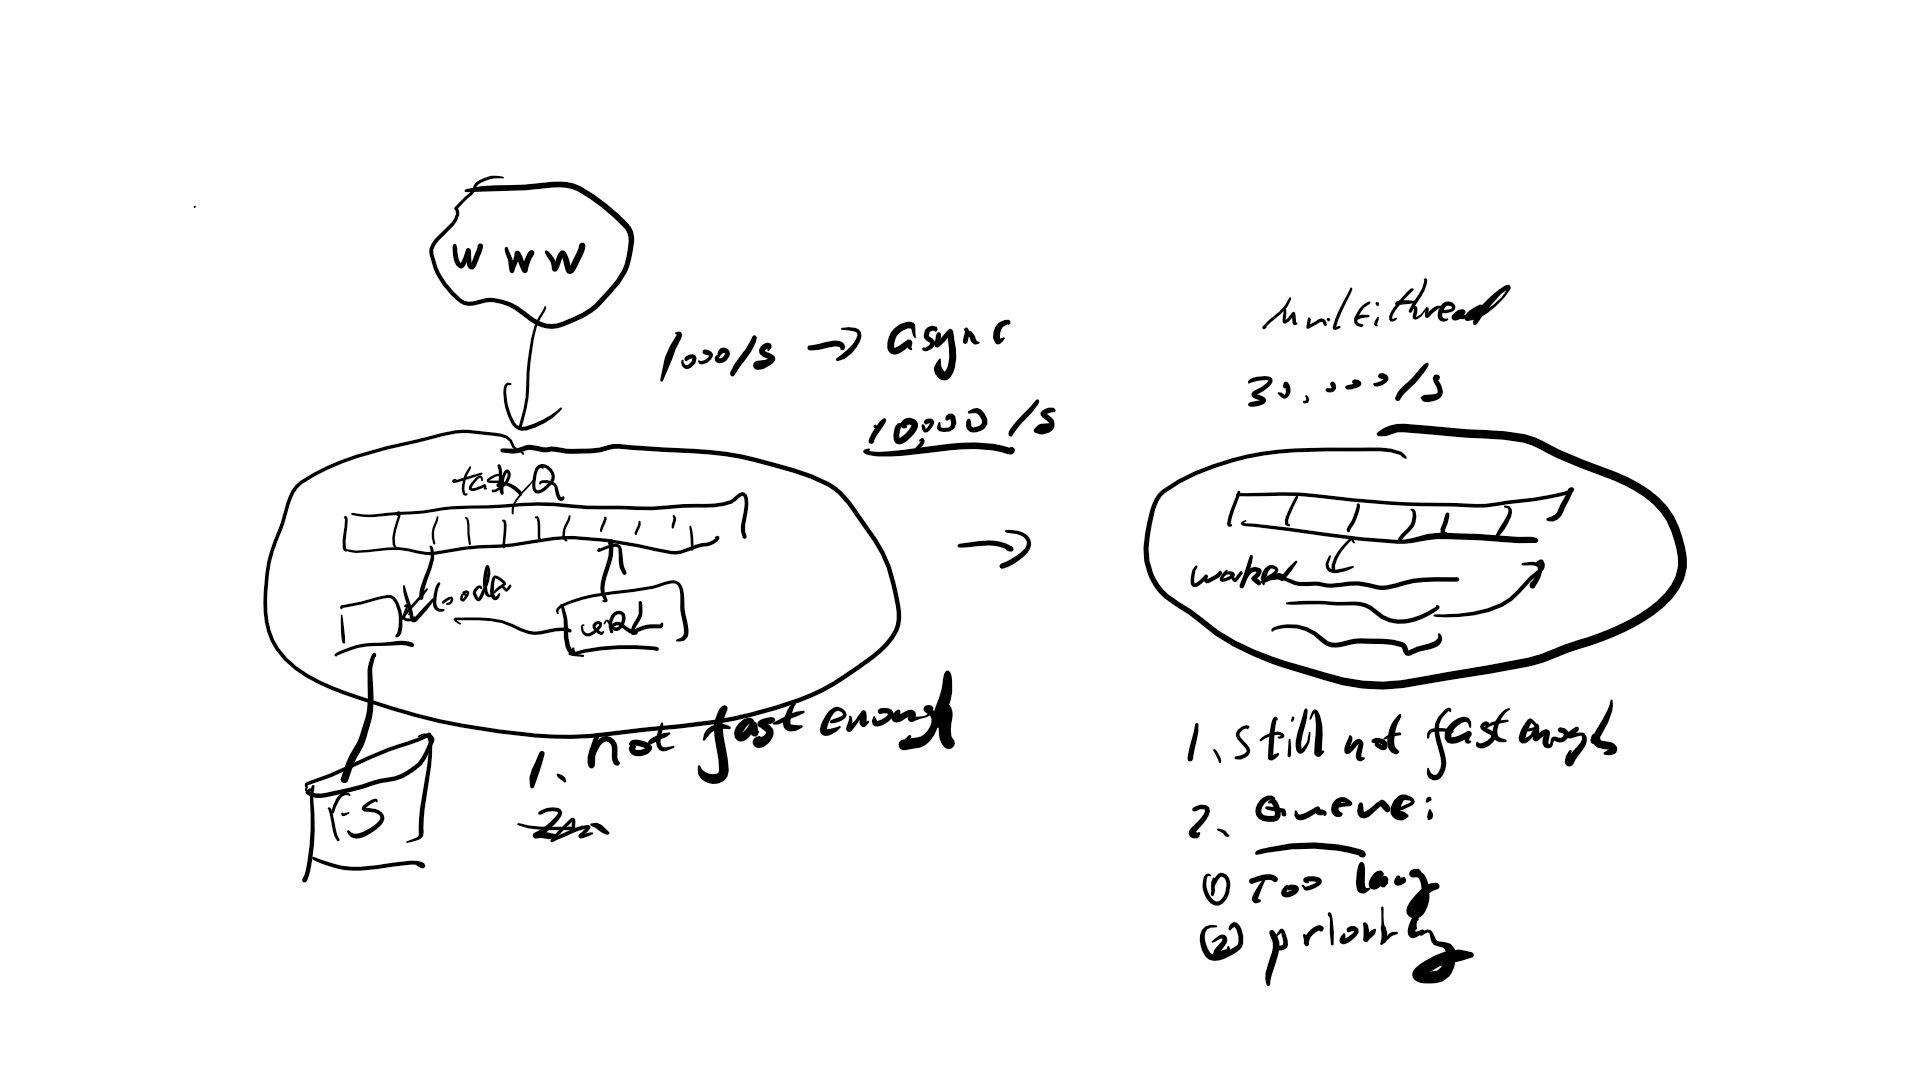 www
1000/s → async
10,000 /s
task Q
URL
FS
1. not fast enough
multithread
30,000/s
worker
1. still not fast enough
2. Queue:
① Too long
② priority